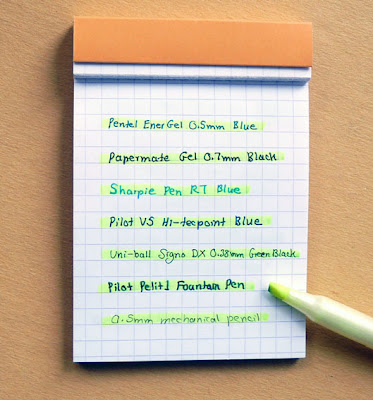 Pentel EnerGel 0.5mm Blue
Papermate Gel 0.7mm Black
Sharpie Pen RT Blue
Pilot V5 Hi-tecpoint Blue
Uni-ball Signo DX 0.28mm Green Black
Pilot Petit1 Fountain Pen
0.5mm mechanical pencil